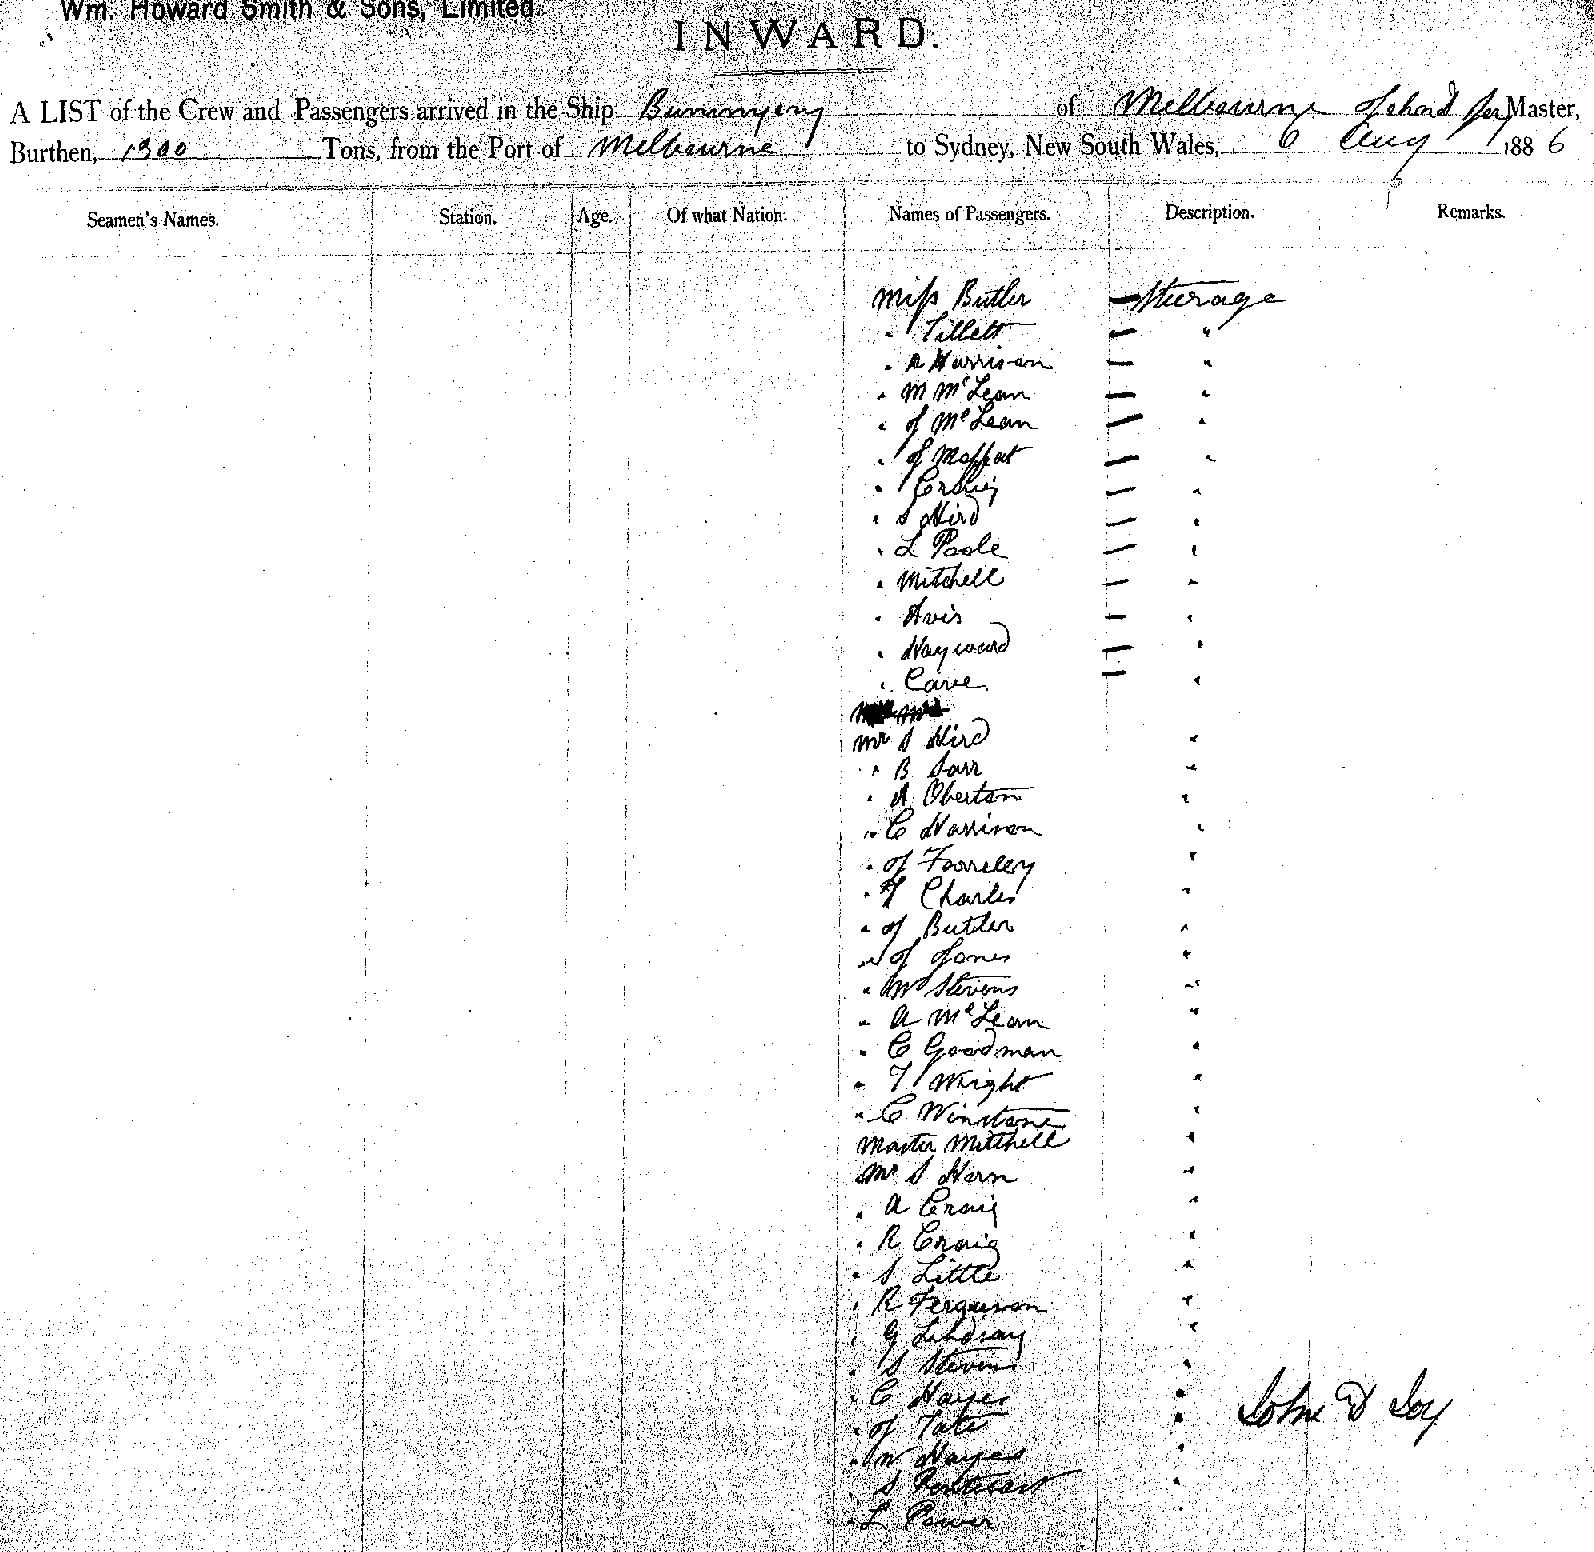 Wm. Howard Smith & Sons, Limited.
INWARD.
A LIST of the Crew and Passengers arrived in the Ship Buninyong of Melbourne John D Joy Master,
Burthen, 1300 Tons, from the Port of Melbourne to Sydney, New South Wales, 6 Aug 1886
Seamen's Names. Station. Age. Of what Nation. Names of Passengers. Description. Remarks.
Miss Butler — Steerage
" Tillett — "
" R Harrison — "
" M McLean — "
" J McLean — "
" J Moffat — "
" Craig — "
" S Hird — "
" L Poole — "
" Mitchell — "
" Avis — "
" Hayward — "
" Cave — "
Mr S Hird "
" B "
" A Oberton "
" C Harrison "
" J "
" T Charles "
" J Butler "
" J Jones "
" W Stevens "
" A McLean "
" C Goodman "
" T Wright "
" C Winstone "
Master Mitchell "
Mr S Hern "
" A Craig "
" R Craig "
" S Little "
" R Ferguson "
" G Lindsay "
" S Stevens "
" C Hayes "
John D Joy
" J Tate "
" W Hayes "
" S "
" L Power "